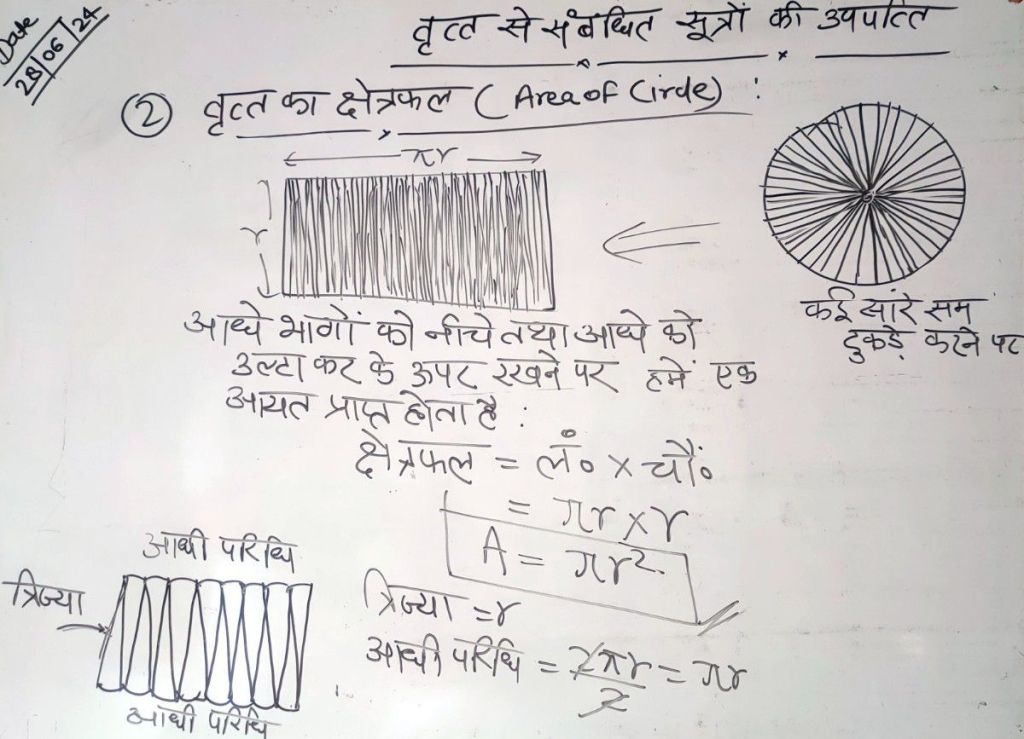 Date
28/06/24
वृत्त से संबधित सूत्रों की उपपत्ति
② वृत्त का क्षेत्रफल ( Area of Circle) :
πr
r
कई सारे सम
टुकड़े करने पर
आधे भागों को नीचे तथा आधे को
उल्टा कर के ऊपर रखने पर हमें एक
आयत प्राप्त होता है :
क्षेत्रफल = लं० × चौं०
= πr × r
A = πr²
आधी परिधि
त्रिज्या
आधी परिधि
त्रिज्या = r
आधी परिधि = 2πr/2 = πr